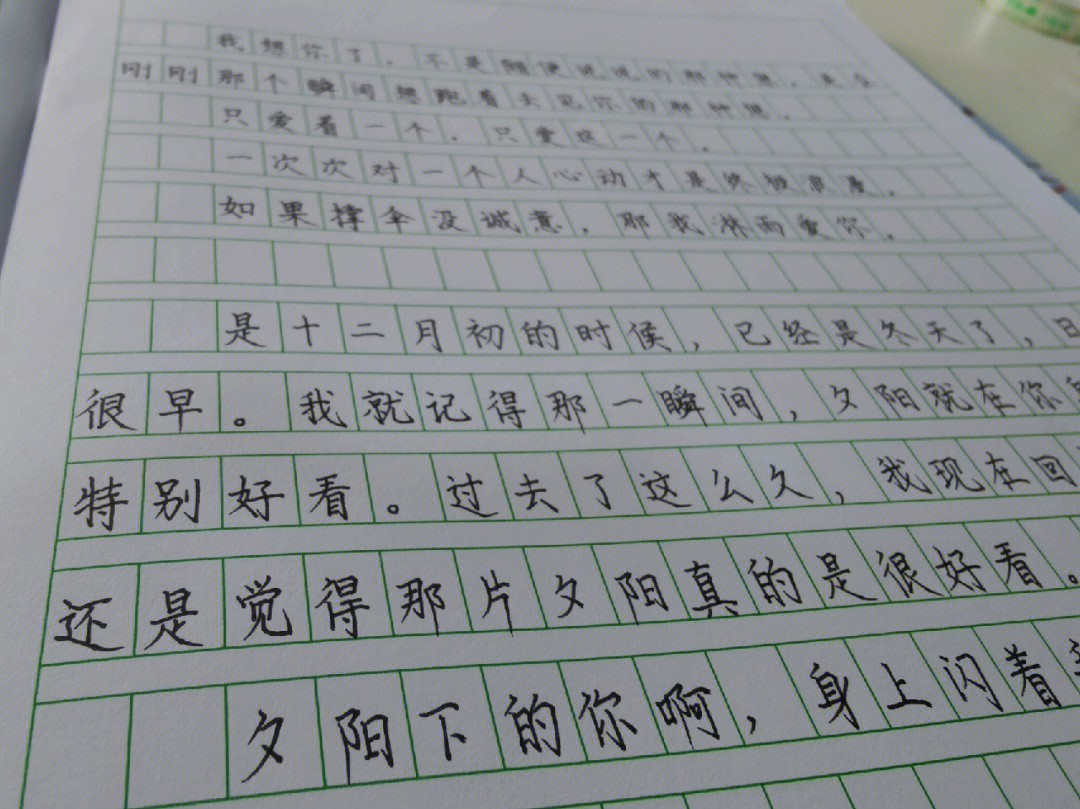 我想你了，不是随便说说的那种想，是在
刚刚那个瞬间想跑着去见你的那种想。
只爱着一个，只爱这一个。
一次次对一个人心动才是终极浪漫。
如果撑伞没诚意，那我淋雨爱你。
是十二月初的时候，已经是冬天了，日
很早。我就记得那一瞬间，夕阳就在你
特别好看。过去了这么久，我现在回
还是觉得那片夕阳真的是很好看。
夕阳下的你啊，身上闪着